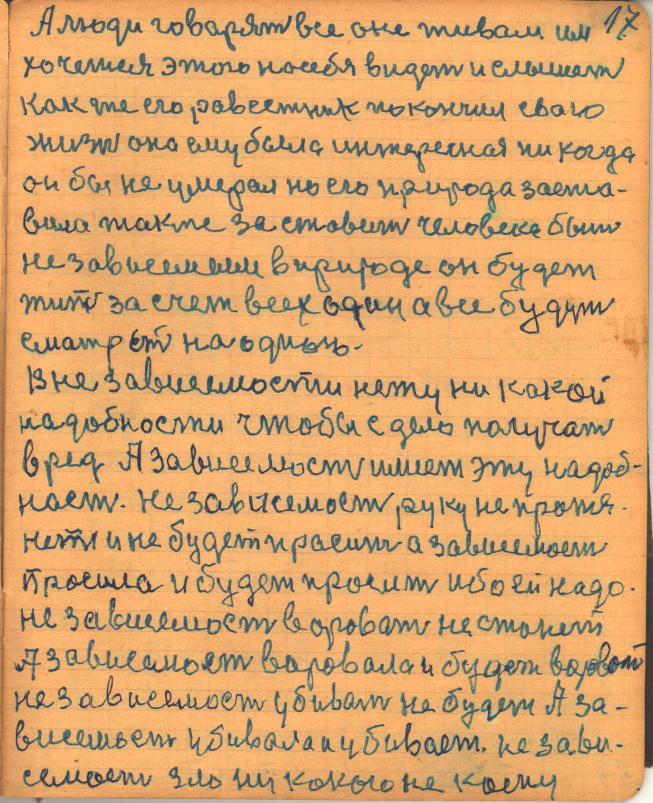 А люди говорят все оне живал. им 17
хочется этого на себя видет и слышет
как же его равестник покончил сваю
жизт она ему была интересная никогда
он бы не умерал но его природа заста-
вила также заставит человека быт
не зависемым в природе он будет
жит за счет всех один а все будут
сматрет на однью.
В не зависемости нету ни какой
надобности чтобы с дела палучат
вред А зависемост имеет эту надоб-
ност. не зависемост руку не протя-
нет и не будет прасит а зависемост
просила и будет просит ибо ей надо.
не зависемост вороват не станет
А зависемост воровала и будет вороват
не зависемост убиват не будет А за-
висемост убивала и убивает. не зави-
семост зло ни какого не